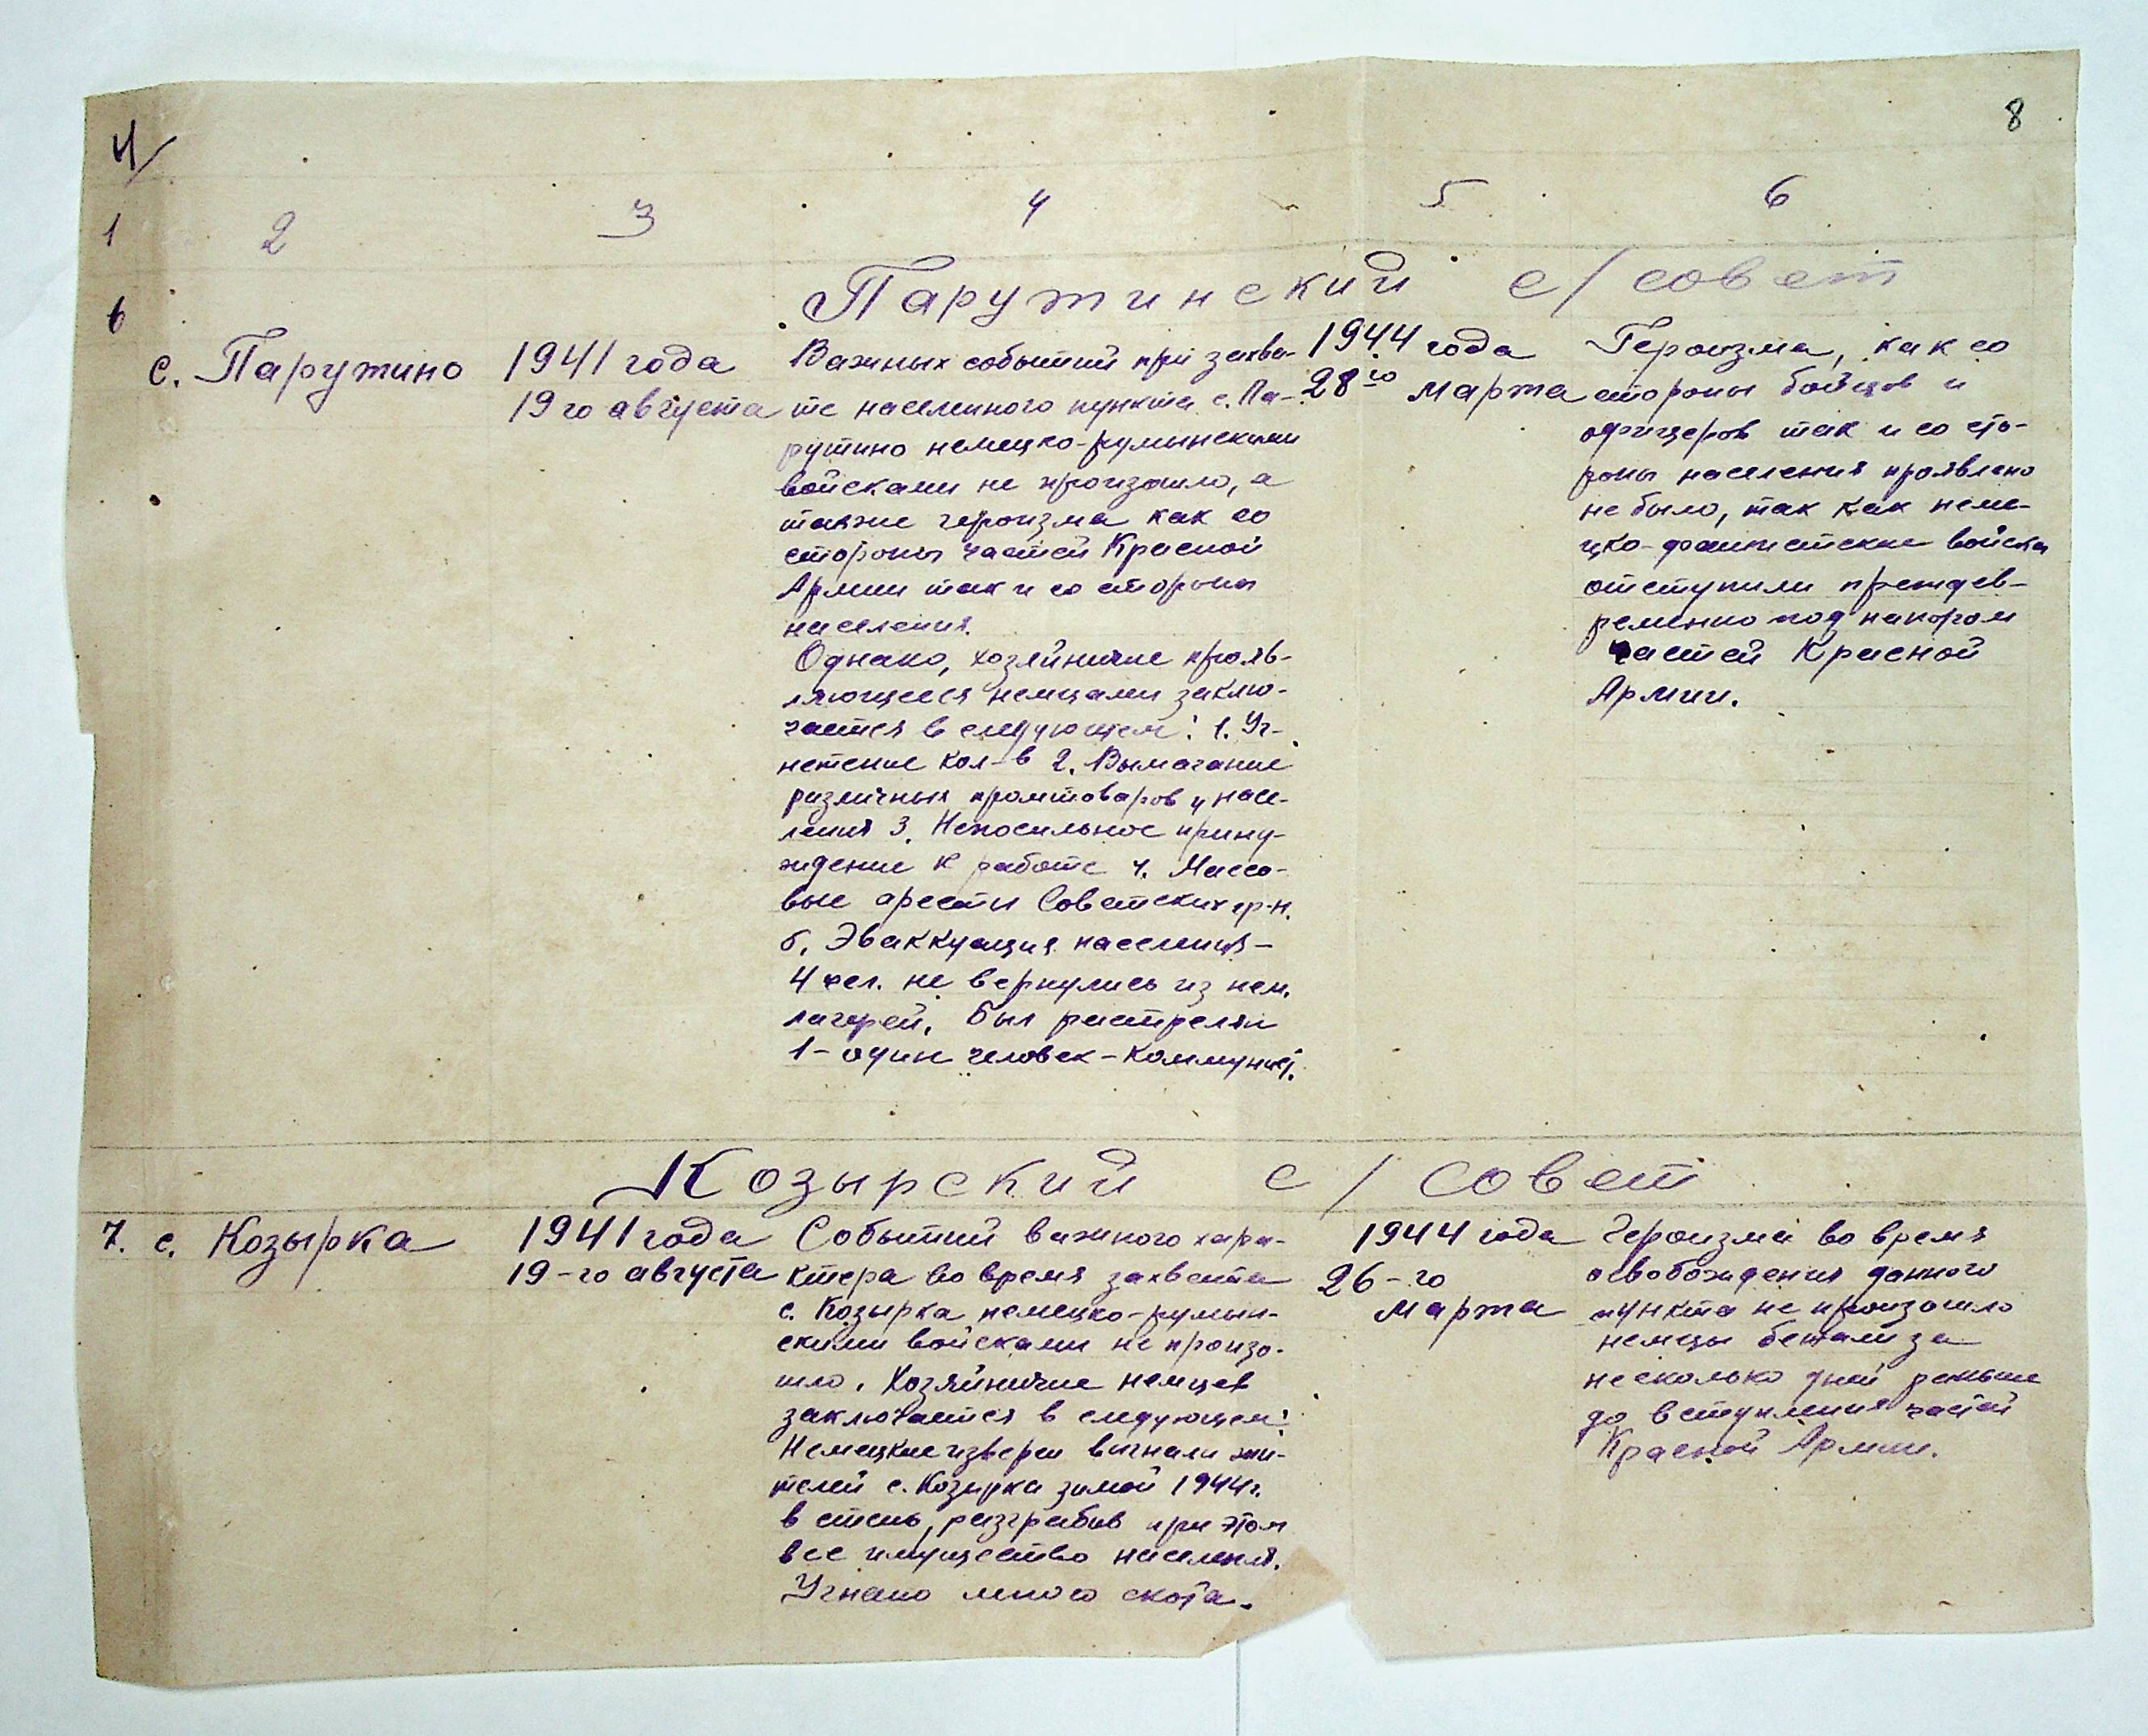 4/
8
1 2 3 4 5 6
Парутинский с/совет
6
с. Парутино
1941 года
19го августа
Важных событий при захва-
те населенного пункта с. Па-
рутино немецко-румынскими
войсками не произошло, а
также героизма как со
стороны частей Красной
Армии так и со стороны
населения.
Однако, хозяйничие прояв-
ляющееся немцами заклю-
чается в следующем: 1. Уг-
нетение кол-в 2. Вымагание
различных промтоваров у насе-
ления 3. Непосильное прину-
ждение к работе 4. Массо-
вые аресты Советских гр-н.
5. Эваккуация населения-
4 чел. не вернулись из нем.
лагерей. Был растрелян
1-один человек-Коммунист.
1944 года
28го марта
Героизма, как со
стороны бойцов и
офицеров так и со сто-
роны населения проявлено
не было, так как неме-
цко-фашистские войска
отступили преждев-
ременно под напором
частей Красной
Армии.
Козырский с/совет
7. с. Козырка
1941 года
19-го августа
Событий важного хара-
ктера во время захвата
с. Козырка немецко-румын-
скими войсками не произо-
шло. Хозяйничие немцев
заключается в следующем:
Немецкие изверги вигнали жи-
телей с. Козырка зимой 1944г.
в степь, разграбив при этом
все имущество населения.
Угнано много скота.
1944 года
26-го
марта
Героизма во время
освобождения данного
пункта не произошло
немцы бежали за
несколько дней раньше
до вступления частей
Красной Армии.